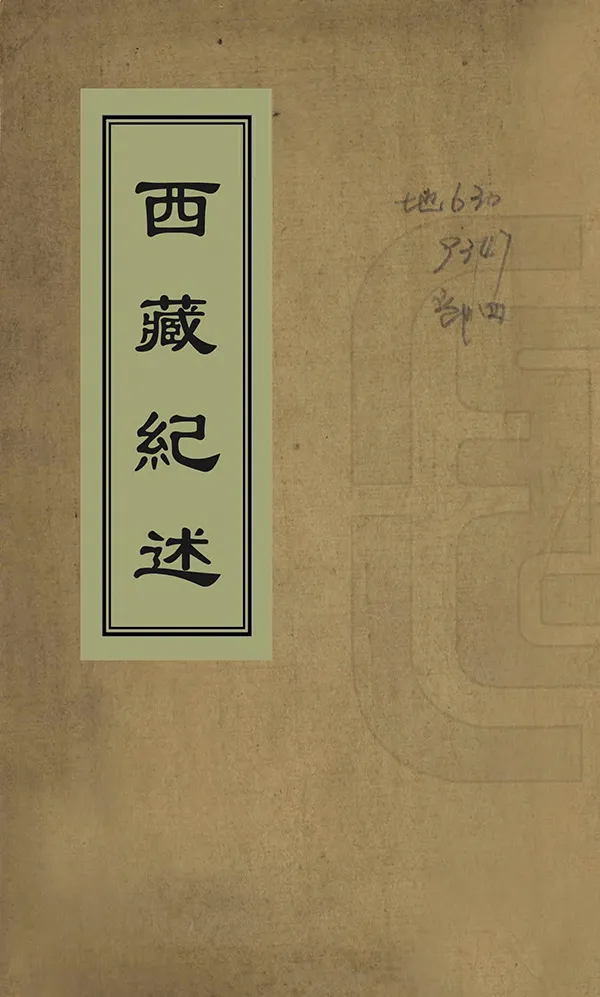 西藏紀述
地630
9347
部四